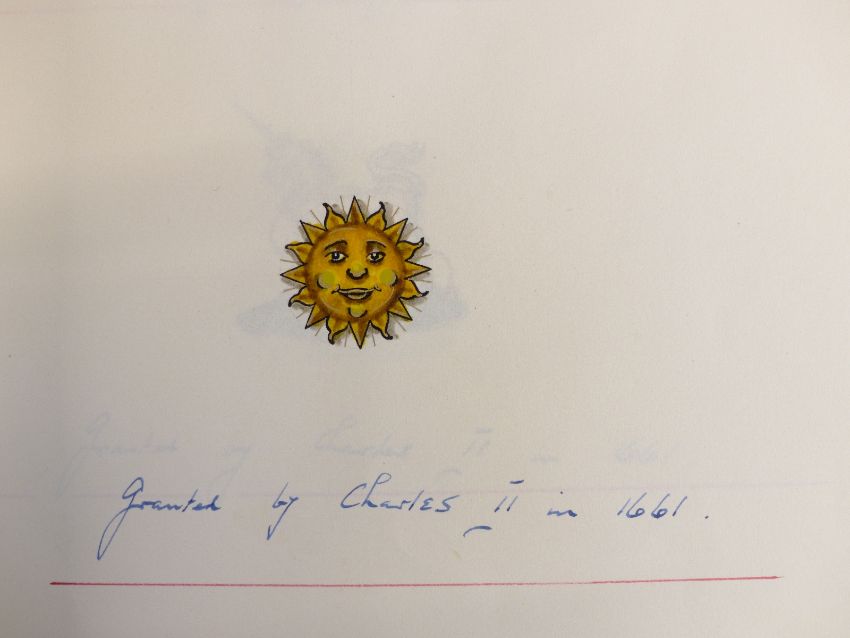 Granted by Charles II in 1661.